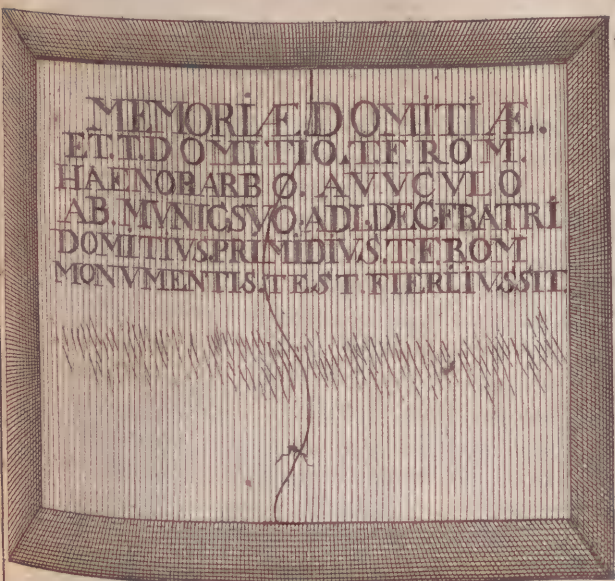 MEMORIÆ.DOMITIÆ.
ET.T.DOMITIO.T.F.ROM.
HAENOBARBO. AVVCVLO
AB.MVNIC.SVO.ADI.DEC.FRATRI
DOMITIVS.PRIMIDIVS.T.F.ROM
MONVMENTIS.TEST.FIERI.IVSSIT